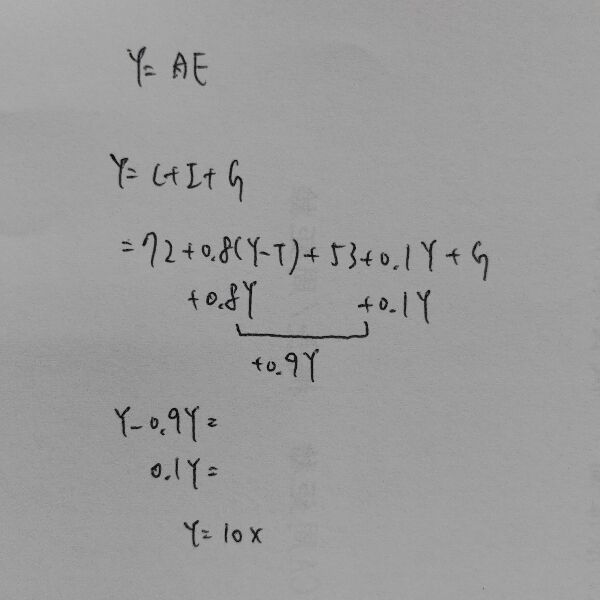 Y= AE
Y= C+I+G
=72+0.8(Y-T)+53+0.1Y+G
+0.8Y +0.1Y
+0.9Y
Y-0.9Y=
0.1Y=
Y=10x